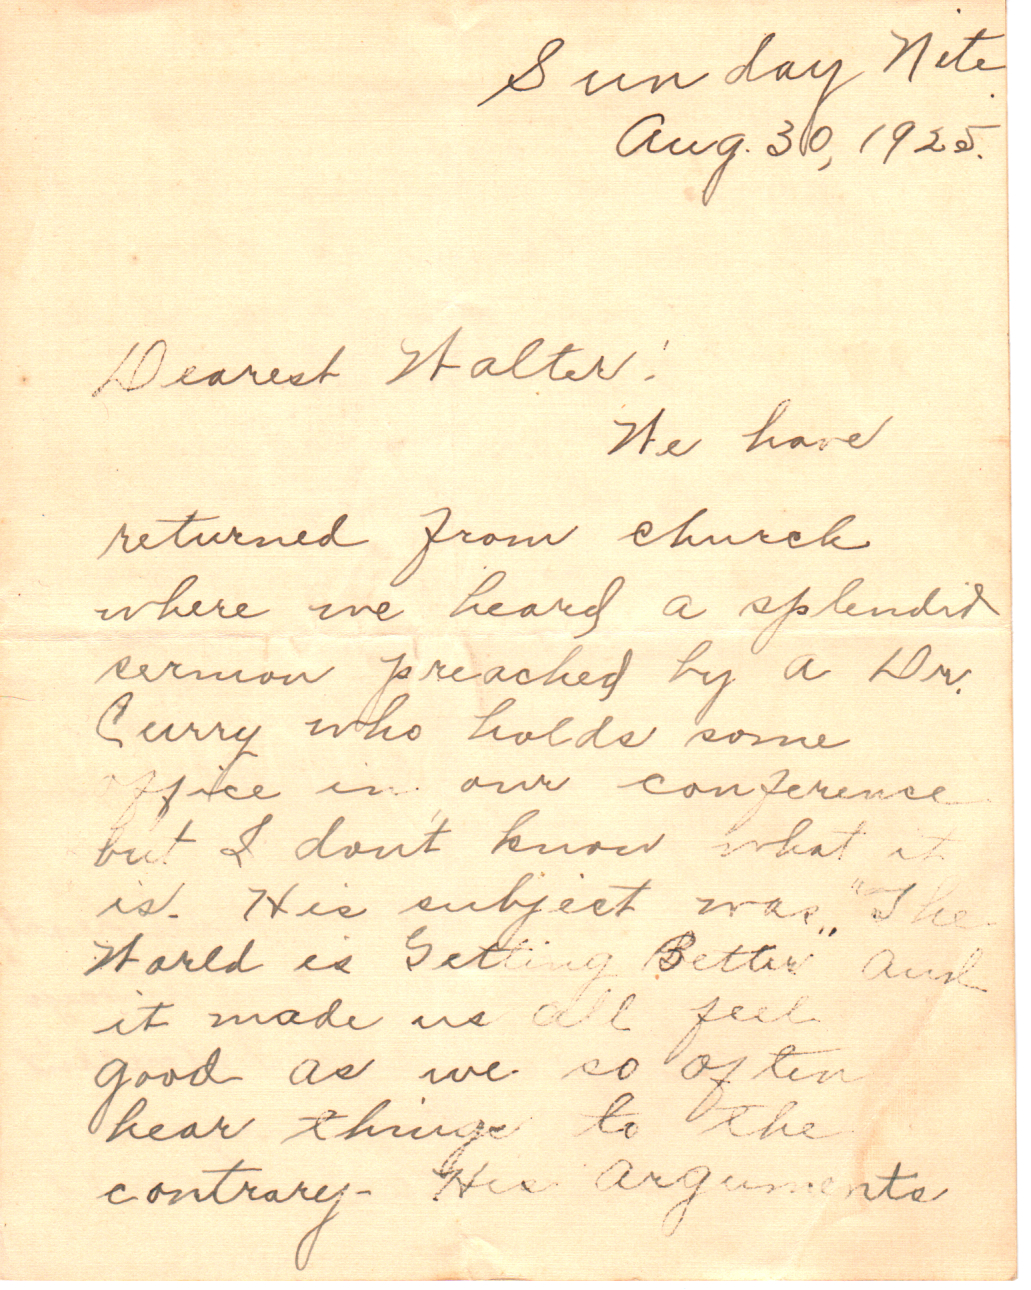 Sunday Nite.
Aug. 30, 1925.
Dearest Walter!
We have
returned from church
where we heard a splendid
sermon preached by a Dr.
Curry who holds some
office in our conference
but I don't know what it
is. His subject was, "The
World is Getting Better" and
it made us all feel
good as we so often
hear things to the
contrary - His arguments